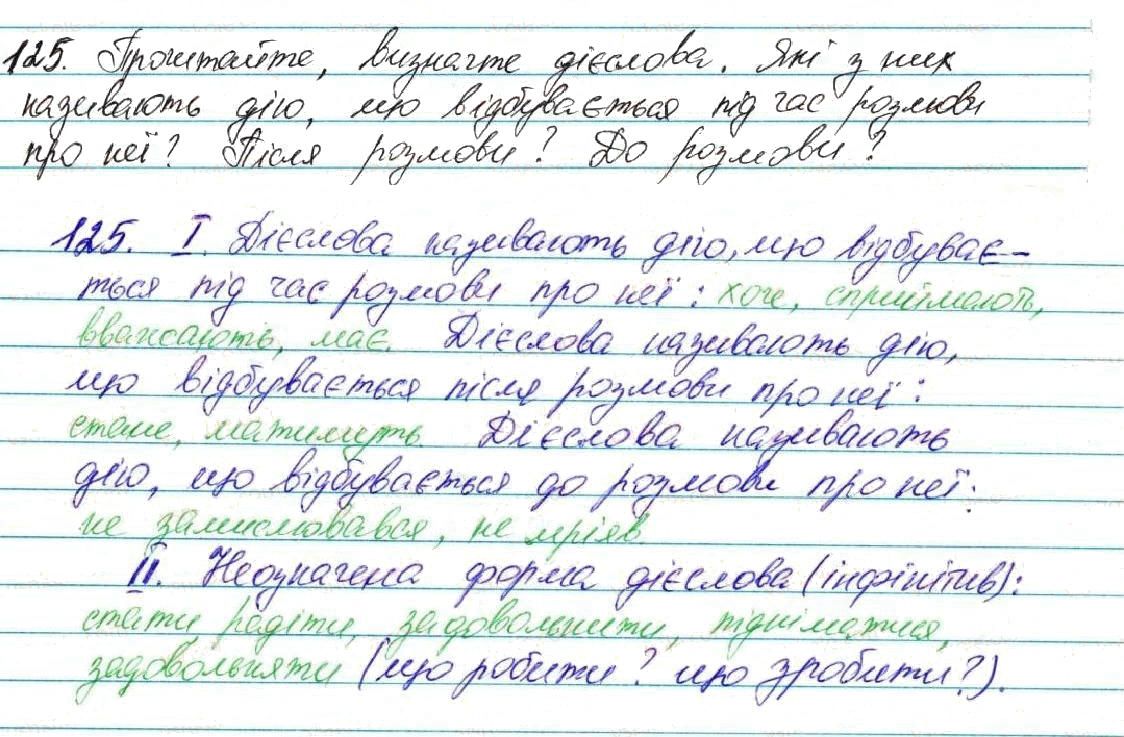 125. Прочитайте, визначте дієслова. Які з них
називають дію, що відбувається під час розмови
про неї? Після розмови? До розмови?
125. I. Дієслова називають дію, що відбуває-
ться під час розмови про неї: хоче, сприймають,
вважають, має. Дієслова називають дію,
що відбувається після розмови про неї:
стане, матимуть. Дієслова називають
дію, що відбувається до розмови про неї:
не замислювався, не мріяв.
II. Неозначена форма дієслова (інфінітив):
стати, радіти, задовольнити, підніматися,
задовольняти (що робити? що зробити?).